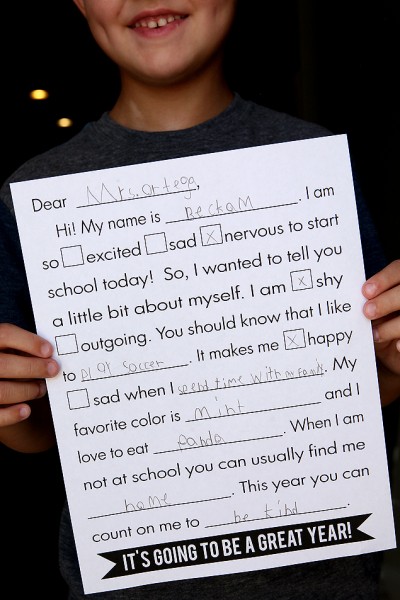 Dear Mrs. ortega,
Hi! My name is BeckaM. I am
so ☐ excited ☐ sad ☒ nervous to start
school today! So, I wanted to tell you
a little bit about myself. I am ☒ shy
☐ outgoing. You should know that I like
to play soccer. It makes me ☒ happy
☐ sad when I spend time with my family. My
favorite color is Mint and I
love to eat panda. When I am
not at school you can usually find me
home. This year you can
count on me to be kind.
IT'S GOING TO BE A GREAT YEAR!